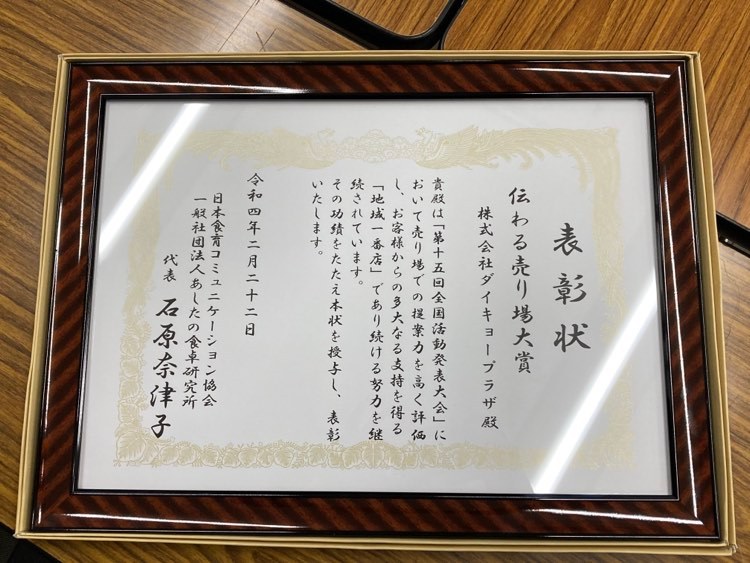 表彰状
伝わる売り場大賞
株式会社ダイキョープラザ殿
貴殿は「第十五回全国活動発表大会」に
おいて売り場での提案力を高く評価
し、お客様からの多大なる支持を得る
「地域一番店」であり続ける努力を継
続されています。
その功績をたたえ本状を授与し、表彰
いたします。
令和四年二月二十二日
日本食育コミュニケーション協会
一般社団法人あしたの食卓研究所
代表 石原奈津子